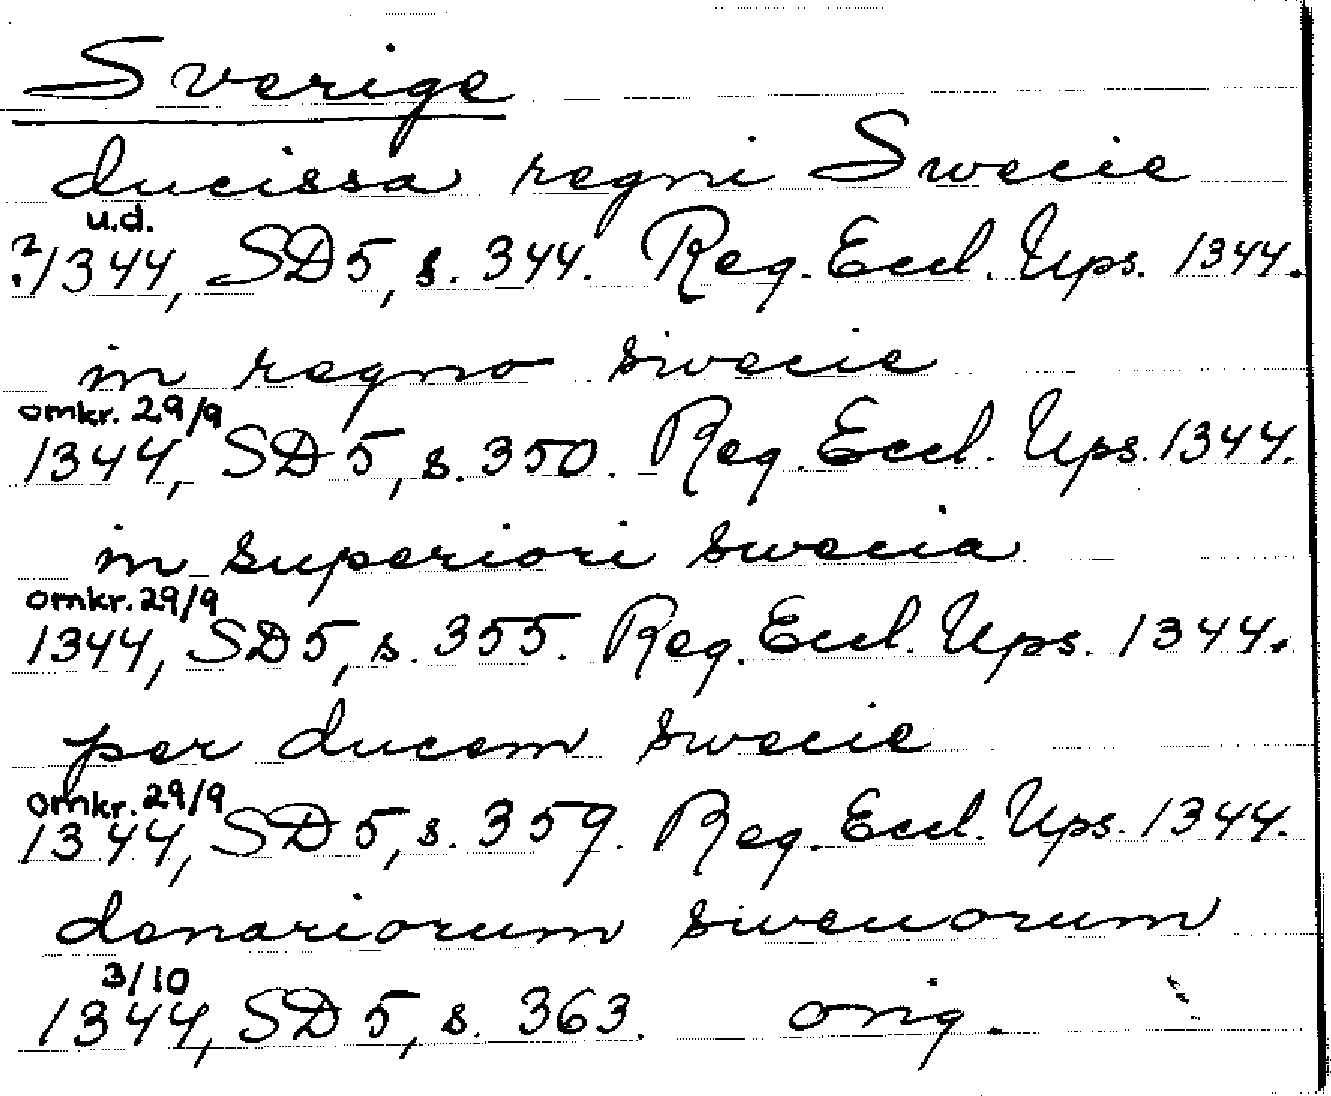 Sverige
ducissa regni Swecie
u.d.
?1344, SD 5, s. 344. Reg. Eccl. Ups. 1344.
in regno swecie
omkr. 29/9
1344, SD 5, s. 350. Reg. Eccl. Ups. 1344.
in superiori swecia
omkr. 29/9
1344, SD 5, s. 355. Reg. Eccl. Ups. 1344.
per ducem swecie
omkr. 29/9
1344, SD 5, s. 359. Reg. Eccl. Ups. 1344.
denariorum swecorum
3/10
1344, SD 5, s. 363. orig.